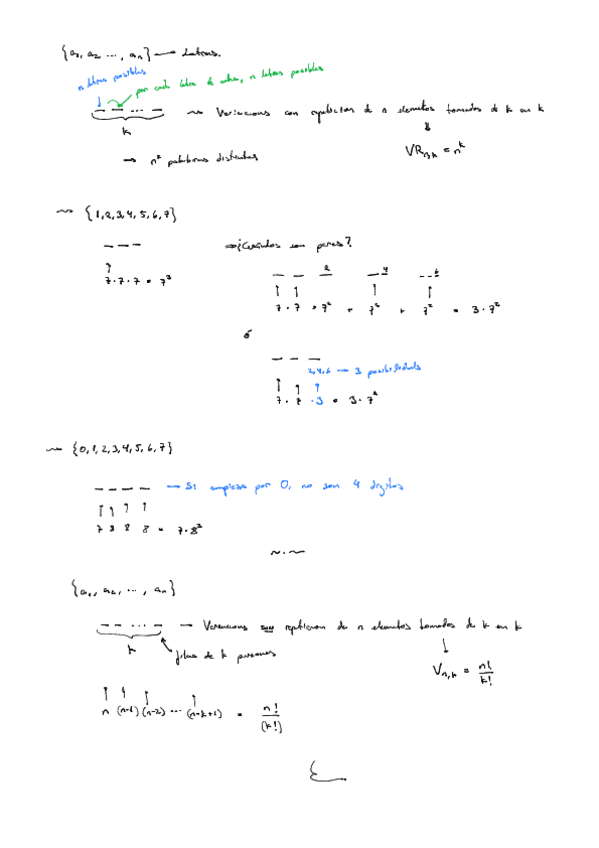 {a₁, a₂ ..., aₙ} → Letras.
n letras posibles
por cada letra de antes, n letras posibles
_ _ ... _ ~> Variaciones con repetición de n elementos tomados de k en k
k
VRn,k = n^k
→ n^k palabras distintas
~> {1,2,3,4,5,6,7}
_ _ _
7·7·7 = 7³
⇒ ¿Cuántos son pares?
_ _ 2 _ 4 _ _ 6
7 · 7 = 7² + 7² + 7² = 3·7²
ó
_ _ _
2,4,6 → 3 posibilidades
7 · 7 · 3 = 3·7²
~> {0,1,2,3,4,5,6,7}
_ _ _ _ → Si empieza por 0, no son 4 dígitos
7 8 8 8 = 7·8³
~·~
{a₁, a₂, ..., aₙ}
_ _ ... _ → Variaciones sin repetición de n elementos tomados de k en k
k
filas de k personas
Vn,k = n!/k!
n (n-1) (n-2) ... (n-k+1) = n!/(k!)